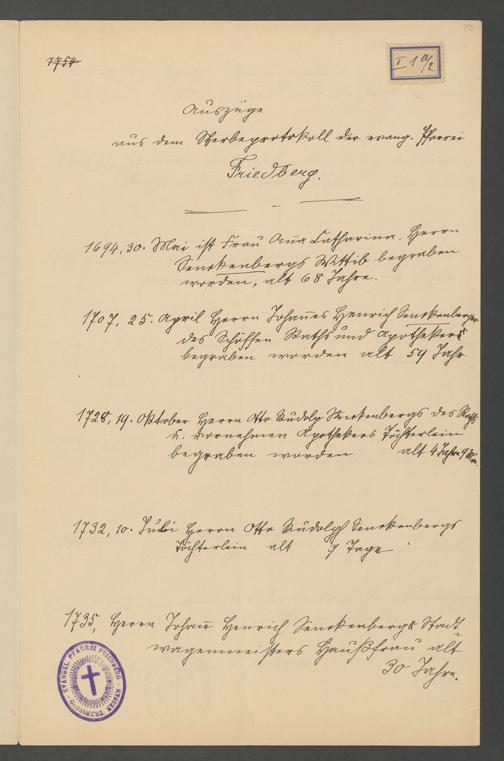 1754
I 1 a/2
Auszüge
aus dem Sterbeprotokoll der evang. Pfarrei
Friedberg.
1694, 30. Mai ist Frau Anna Catharina, Herrn
Senckenbergs Wittib begraben
worden, alt 68 Jahre.
1707, 25. April Herrn Johannes Henrich Senckenberger
des Schöffen Raths und Apothekers
begraben worden alt 59 Jahr
1728, 19. Oktober Herrn Otto Rudolp Senckenbergs des Raths
u. vornehmen Apothekers Töchterlein
begraben worden alt 4 Jahre 9 Mon.
1732, 10. Juli Herrn Otto Rudolph Senckenbergs
Töchterlein alt 7 Tage
1735, Herrn Johann Henrich Senckenbergs Stadt-
wagenmeisters Haußfrau alt
30 Jahre.
EVANGEL. PFARREI FRIEDBERG